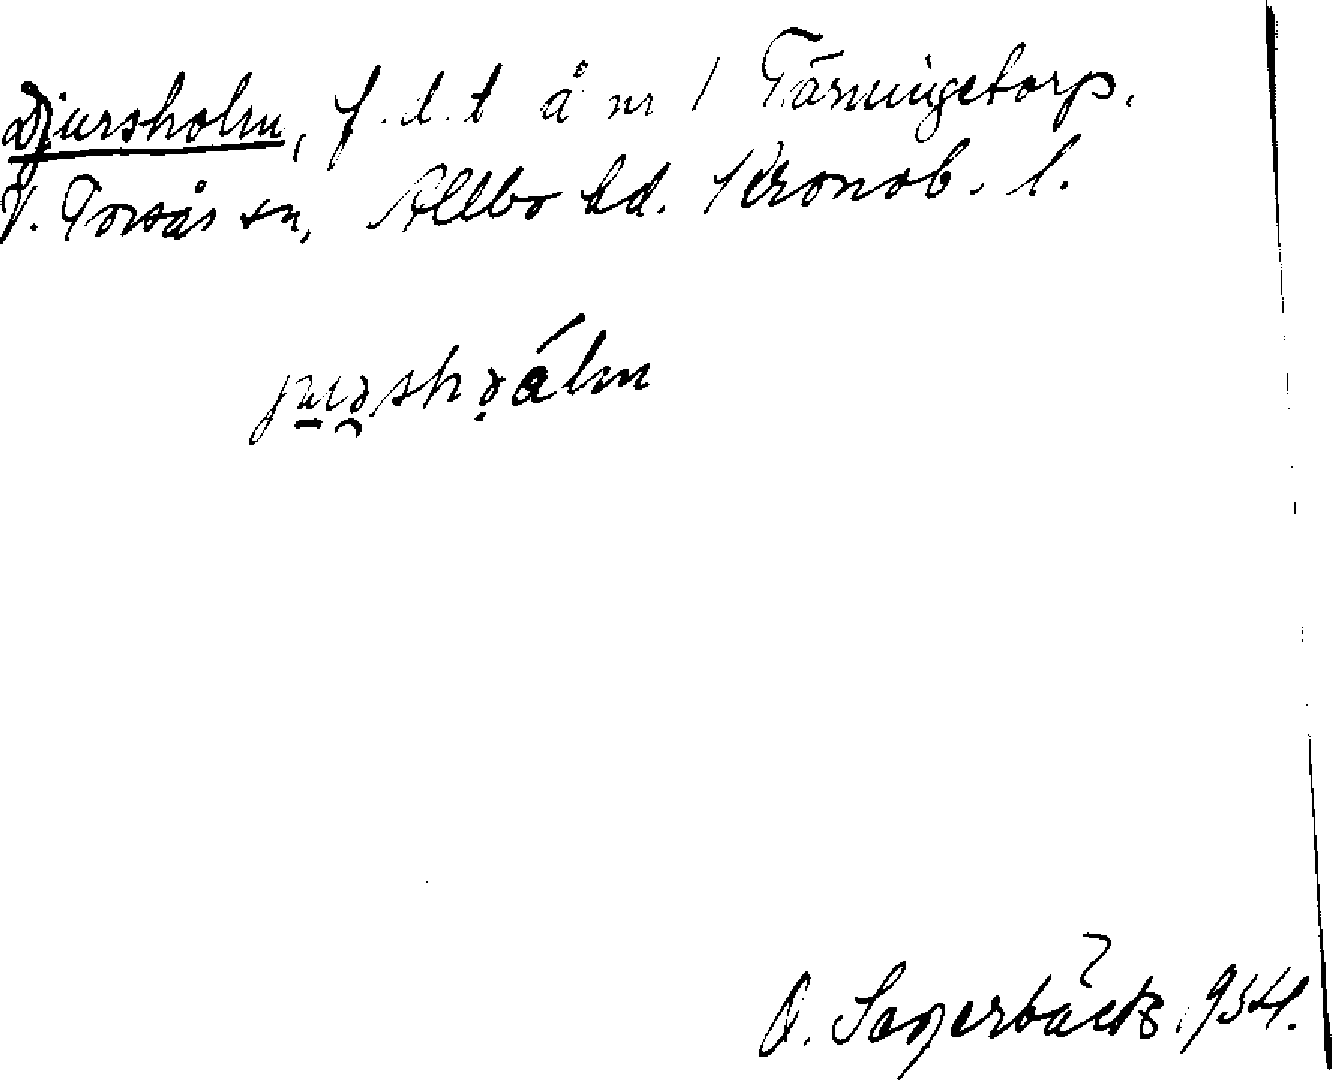 Djursholm, f.d.t å nr 1 Tärningetorp.
V. Torsås sn, Allbo hd. Kronob. l.
O. Sagerbäck, 1934.